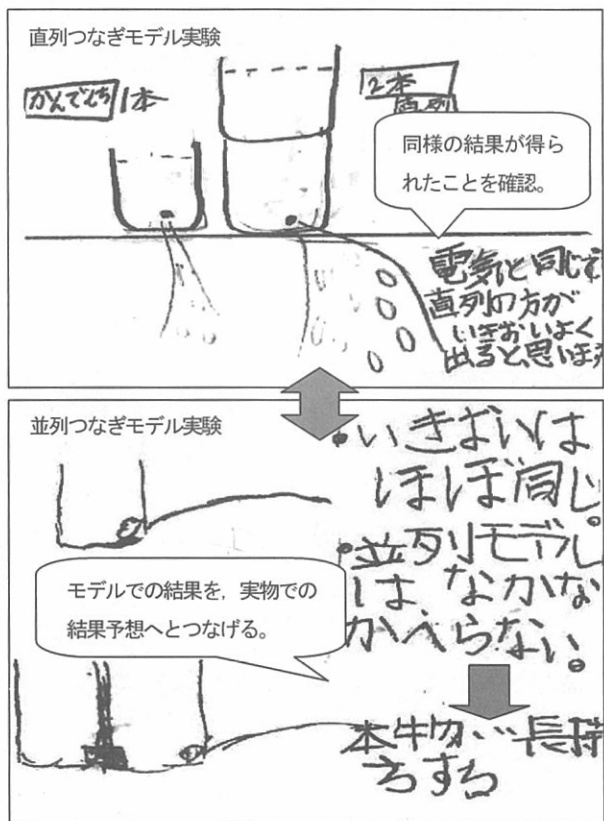 直列つなぎモデル実験
かんでんち 1本
2本
直列
同様の結果が得ら
れたことを確認。
電気と同じで
直列の方が
いきおいよく
出ると思います
並列つなぎモデル実験
・いきおいは
ほぼ同じ。
・並列モデル
は なかな
かへらない。
モデルでの結果を，実物での
結果予想へとつなげる。
本物…長持
ちする